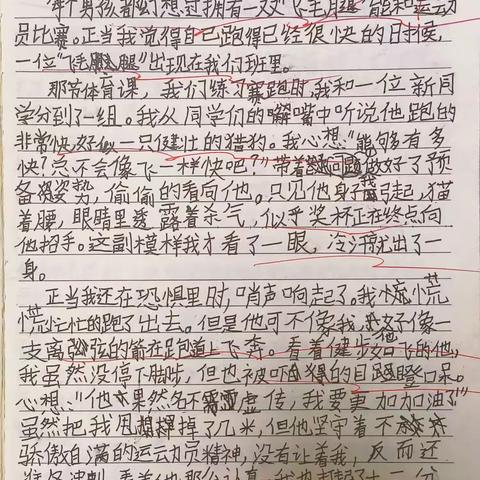 每个男孩都幻想过拥有一双"飞毛腿"能和运动
员比赛。正当我觉得自己跑得已经很快的日时候,
一位"飞毛腿"出现在我们班里。
那节体育课,我们练习赛跑时,我和一位新同
学分到了一组。我从同学们的嘴嘴中听说他跑的
非常快,好似一只健壮的猎豹。我心想:"能够有多
快?总不会像飞一样快吧?"带着问题我做好了预
备姿势,偷偷的看向他。只见他身子弓起,猫
着腰,眼睛里透露着杀气,似乎奖杯正在终点向
他招手。这副模样我才看了一眼,冷汗就出了一
身。
正当我还在恐惧里时,哨声响起了。我慌慌
忙忙的跑了出去。但是他可不像我,好像一
支离弦的箭在跑道上飞奔。看着健步如飞的他,
我虽然没停下脚步,但也被吓得的目瞪口呆。
心想:"他果然名不虚传,我要更加加油了"
虽然把我甩掉了几米,但他坚守着不
骄傲自满的运动员精神,没有让着我,反而还